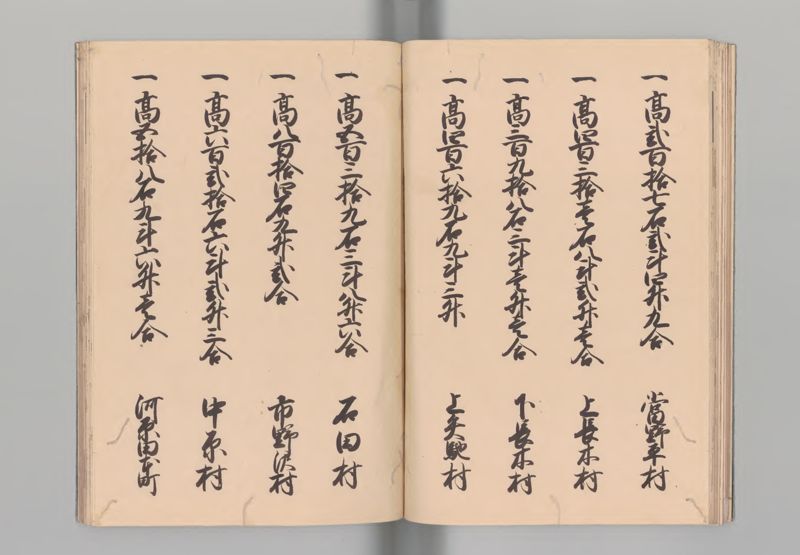 一 高弐百拾七石弐斗四升九合 當野平村
一 高四百三拾壱石八斗弐升壱合 上長木村
一 高三百九拾八石三斗壱升壱合 下長木村
一 高四百六拾九石九斗三升 上矢馳村
一 高五百三拾九石三斗八升六合 石田村
一 高八百拾四石九升弐合 市野沢村
一 高六百弐拾石六斗弐升三合 中原村
一 高五拾八石九斗六升壱合 河原田本町